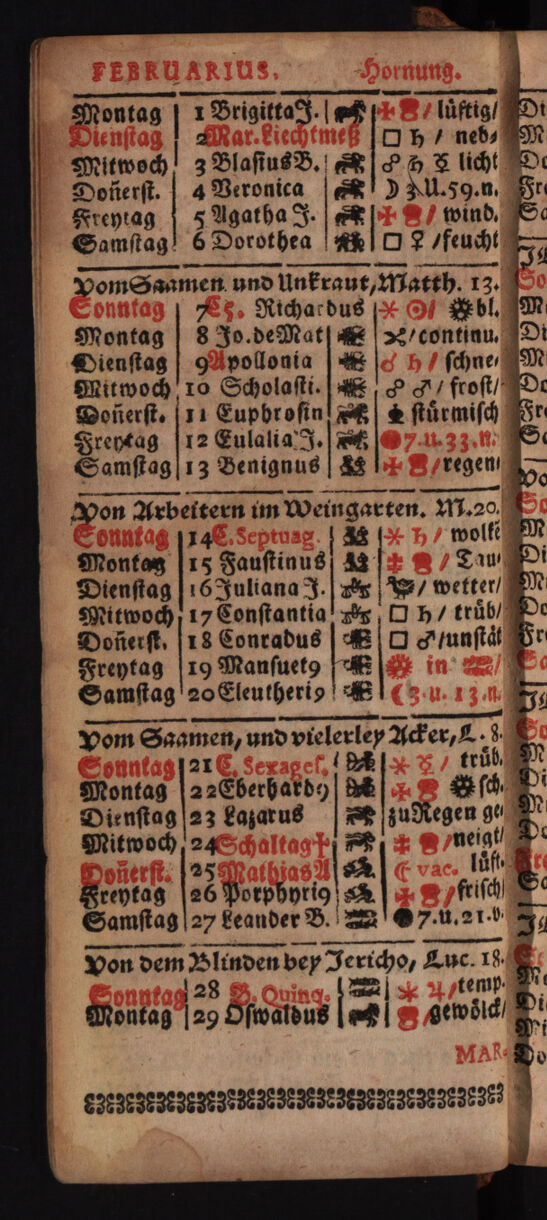 FEBRUARIUS. Hornung.
Montag 1 Brigitta J. ✠ / lüftig/
Dienstag 2 Mar. Liechtmeß □ ♄ / neb⸗
Mitwoch 3 Blasius B. ☍ ♄ ☿ licht
Doñerst. 4 Veronica ☽ 3 U. 59. n.
Freytag 5 Agatha J. ✠ / wind.
Samstag 6 Dorothea □ ♀ / feucht
Vom Saamen und Unkraut, Matth. 13.
Sonntag 7 Richardus ✶ ☉ / bl.
Montag 8 Jo. de Mat / continu.
Dienstag 9 Apollonia ☌ ♄ / schne⸗
Mitwoch 10 Scholasti. ☍ ♂ / frost/
Doñerst. 11 Euphrosin stürmisch
Freytag 12 Eulalia J. 7. u. 33. n.
Samstag 13 Benignus ✠ / regen⸗
Von Arbeitern im Weingarten. M. 20.
Sonntag 14 E. Septuag. ✶ ♄ / wolkẽ
Montag 15 Faustinus / Tau⸗
Dienstag 16 Juliana J. / wetter/
Mitwoch 17 Constantia □ ♄ / trüb/
Doñerst. 18 Conradus □ ♂ / unstät
Freytag 19 Mansuet9 in /
Samstag 20 Eleutheri9 ☾ 3. u. 13. n.
Vom Saamen, und vielerley Acker, L. 8.
Sonntag 21 E. Sexages. ✶ ☿ / trüb.
Montag 22 Eberhard9 ✠ sch.
Dienstag 23 Lazarus zu Regen ge⸗
Mitwoch 24 Schaltag ✝ / neigt/
Doñerst. 25 Mathias A ☾ vac. lüft⸗
Freytag 26 Porphyri9 ✠ / frisch/
Samstag 27 Leander B. ● 7. u. 21. v.
Von dem Blinden bey Jericho, Luc. 18.
Sonntag 28 B. Quinq. ✶ ♃ / temp.
Montag 29 Oswaldus / gewölck/
MAR⸗